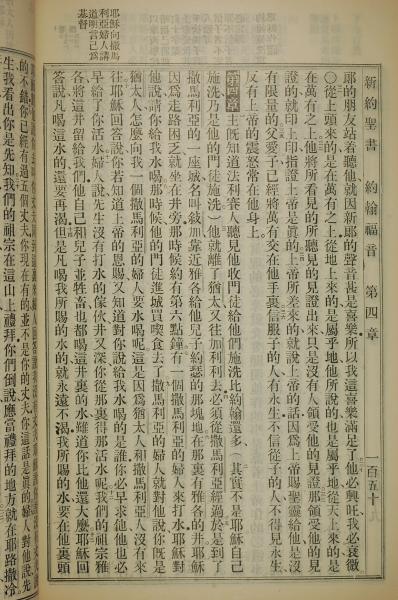 新約聖書 約翰福音 第四章 一百五十
郎的朋友站着聽他、就因新郎的聲音甚是喜樂、所以我這喜樂滿足了。他必興旺、我必衰微
〇從上頭來的是在萬有之上、從地上來的是屬乎地、他所說的也是屬乎地、從天上來的是
在萬有之上。他將所看見的所聽見的見證出來、只是沒有人領受他的見證。那領受他的見
證的、就印上印、指證上帝是眞的。上帝所差來的、就說上帝的話、因爲上帝賜聖靈給他、是沒
有限量的。父愛子、已經將萬有交在他手裏。信服子的人有永生、不信從子的人不得見永生、
反有上帝的震怒常在他身上。
第四章 主旣知道法利賽人聽見他收門徒給他們施洗比約翰還多、(其實不是耶穌自己
施洗乃是他的門徒施洗)他就離了猶太、又往加利利去。必須從撒馬利亞經過、於是到了
撒馬利亞的一座城、名叫敍加、靠近雅各給他兒子約瑟的那塊地、在那裏有雅各的井、耶穌
因爲走路困乏、就坐在井旁、那時候約有第六點鐘。有一個撒馬利亞的婦人來打水、耶穌對
他說、請你給我水喝。那時候他的門徒進城買喫食去了。撒馬利亞的婦人就對他說、你旣是
猶太人、怎麼向我一個撒馬利亞的婦人要水喝呢、這是因爲猶太人和撒馬利亞人沒有來
往。耶穌回答說、你若知道上帝的恩賜、又知道對你說給我水喝的是誰、你必早求他、他也必
早給了你活水。婦人說、先生沒有打水的傢伙、井又深、你從那裏得那活水呢。我們的祖宗雅
各將這井留給我們、他自己和兒子並牲畜、也都喝這井裏的水、難道你比他還大麽。耶穌回
答說、凡喝這水的、還要再渴。但是凡喝我所賜的水的、就永遠不渴、我所賜的水、要在他裏頭
耶穌向撒馬
利亞婦人講
道明言己爲
基督
的不錯、你已經有過五個丈夫、你現在有的、並不是你的丈夫、你這話是眞的。婦人對他說、先
生、我看出你是先知。我們的祖宗在這山上禮拜、你們倒說應當禮拜的地方、就在耶路撒冷